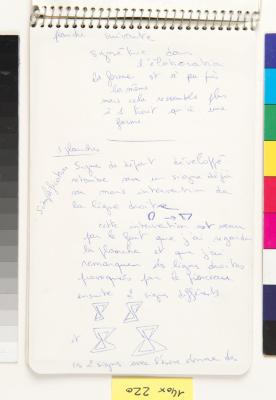 planche suivante
symétrie dans
l'élaboration
la forme est à peu près
la même
mais cela ressemble plus
à 1 haut qu'à une
forme
3 planches
Signe de départ développé
retombe sur un signe déjà
vu mais intervention de
la ligne droite
simplification
cette intervention est venue
par le fait que j'ai regardé
la planche et que j'ai
remarqué des lignes droites
provoquées par le pinceau
ensuite 2 signes différents
et
ces 2 signes
140x220